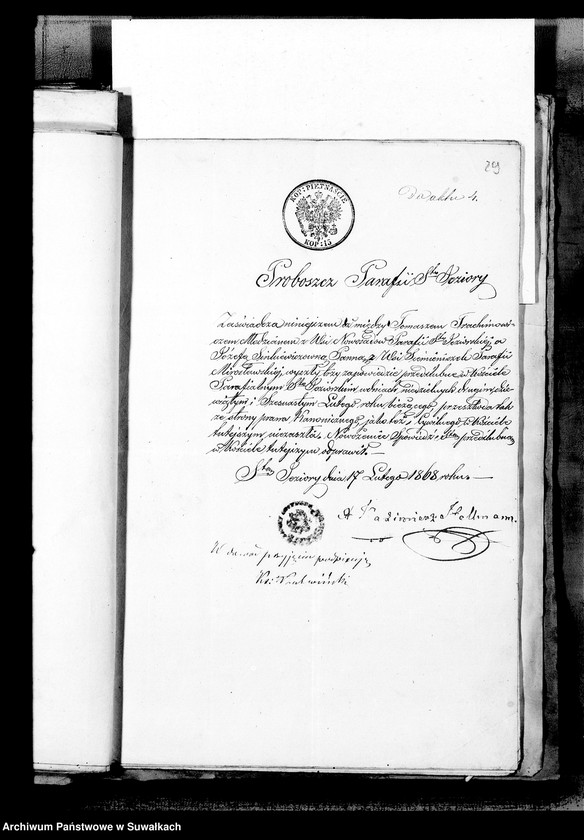 29
Do aktu 4.
KOP: PIĘTNAŚCIE
KOP: 15
Proboszcz Parafii Sto Jeziory
Zaświadcza niniejszem iż między Tomaszem Trachimowi-
czem Młodzianem z Wsi Nowosadów Parafii Sto Jeziorskiej, a
Józefą Panną z Wsi Parafii
Mirosławskiej, wyszły trzy zapowiedzie przedślubne w Kościele
Parafialnym Sto Jeziorskim w dniach niedzielnych drugim, dzie-
wiątym i Szesnastym Lutego roku bieżącego, przeszkoda tak
ze strony prawa Kanonicznego, jako też Cywilnego w Kościele
tutejszym niezaszła. Nowożeniec Spowiedź Stą przedślubną
w Kościele tutejszym odprawił.—
Sto Jeziory dnia 17 Lutego 1868 roku.—
X Kazimierz Hollmann.
W dowód przyjęcia podpisuję
Ks:
Archiwum Państwowe w Suwałkach